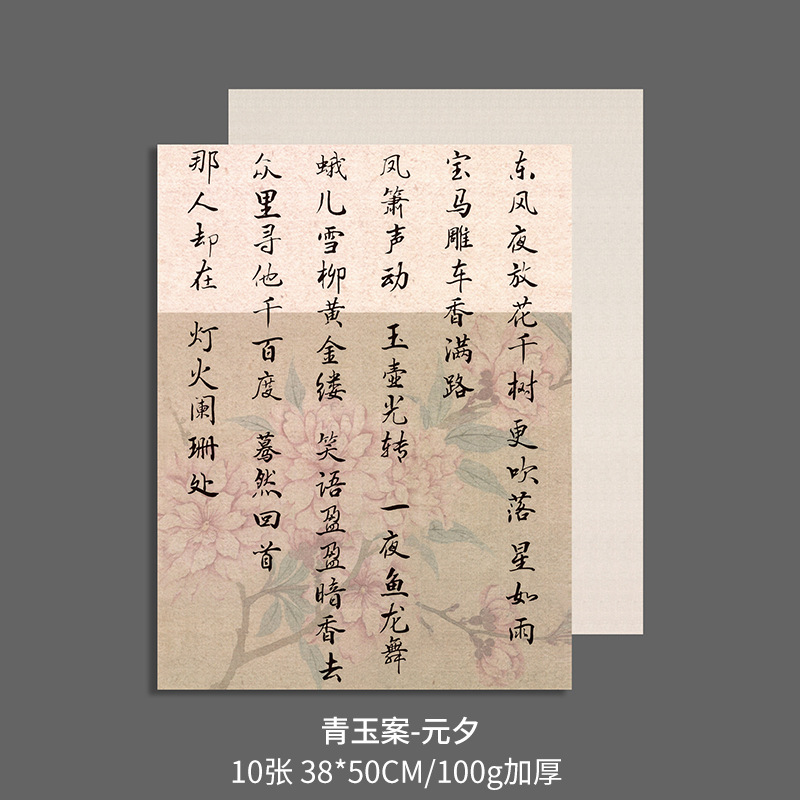 东风夜放花千树 更吹落 星如雨
宝马雕车香满路
凤箫声动 玉壶光转 一夜鱼龙舞
蛾儿雪柳黄金缕 笑语盈盈暗香去
众里寻他千百度 蓦然回首
那人却在 灯火阑珊处
青玉案-元夕
10张 38*50CM/100g加厚